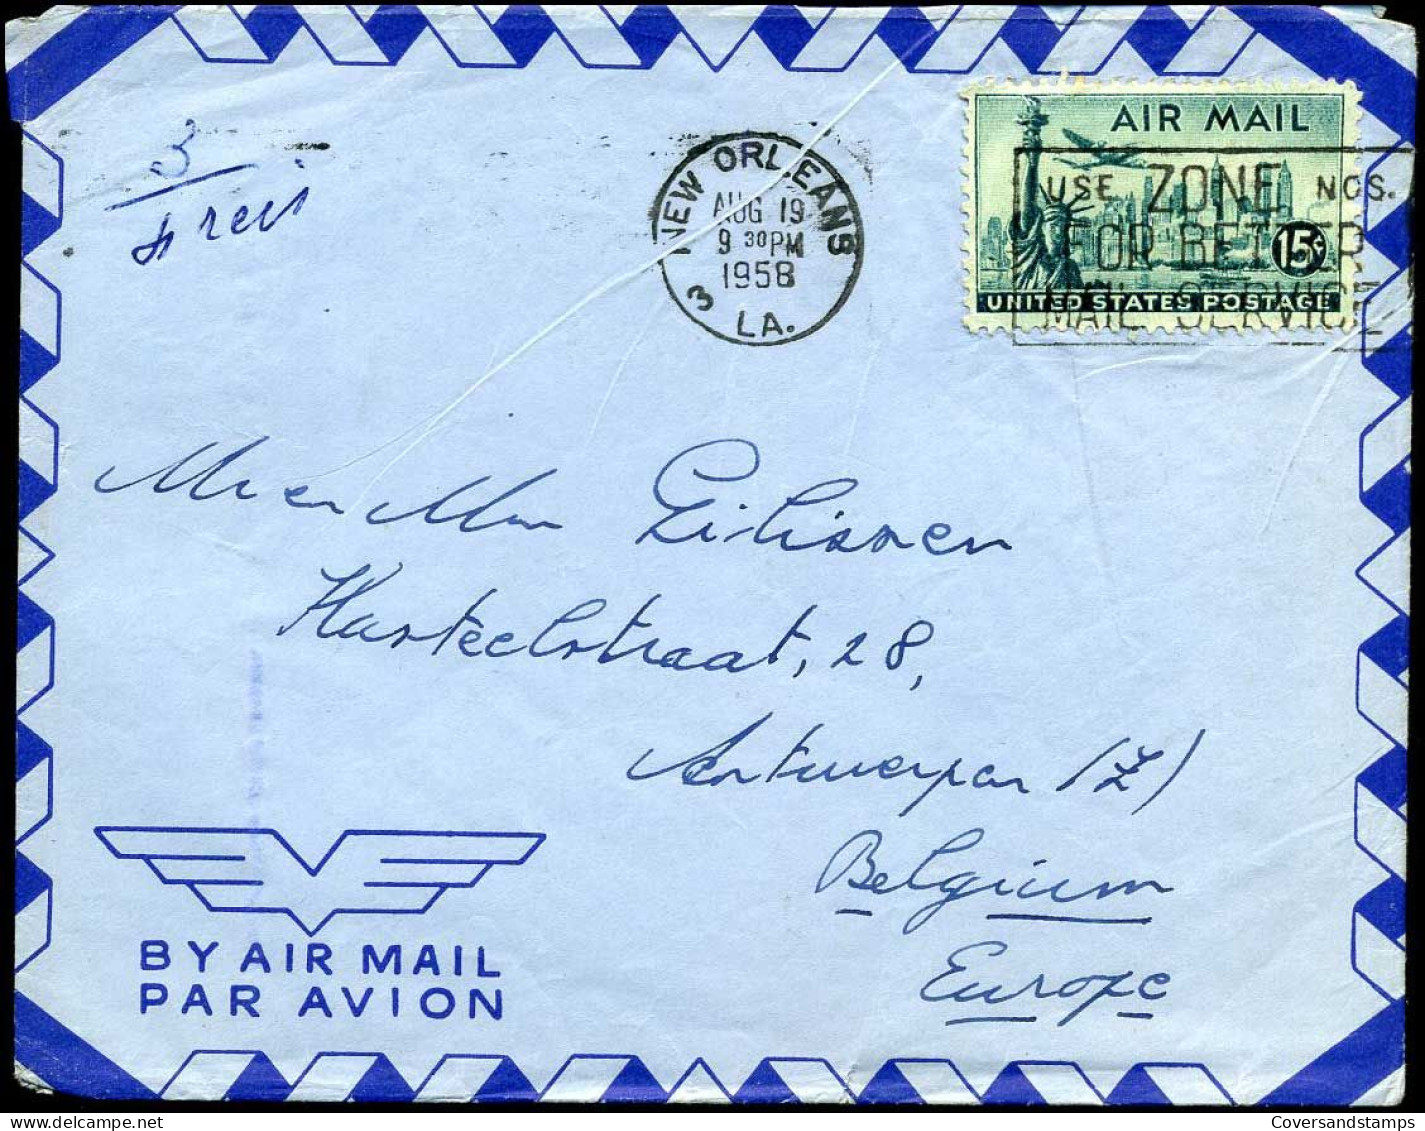 3
AIR MAIL
NEW ORLEANS
AUG 19
9 30 PM
1958
3 LA.
USE ZONE NOS.
FOR BETTER
MAIL SERVICE
15¢
UNITED STATES POSTAGE
Mr en Mw Gilissen
Kasteelstraat, 28,
Antwerpen (Z)
Belgium
Europe
BY AIR MAIL
PAR AVION
Coversandstamps